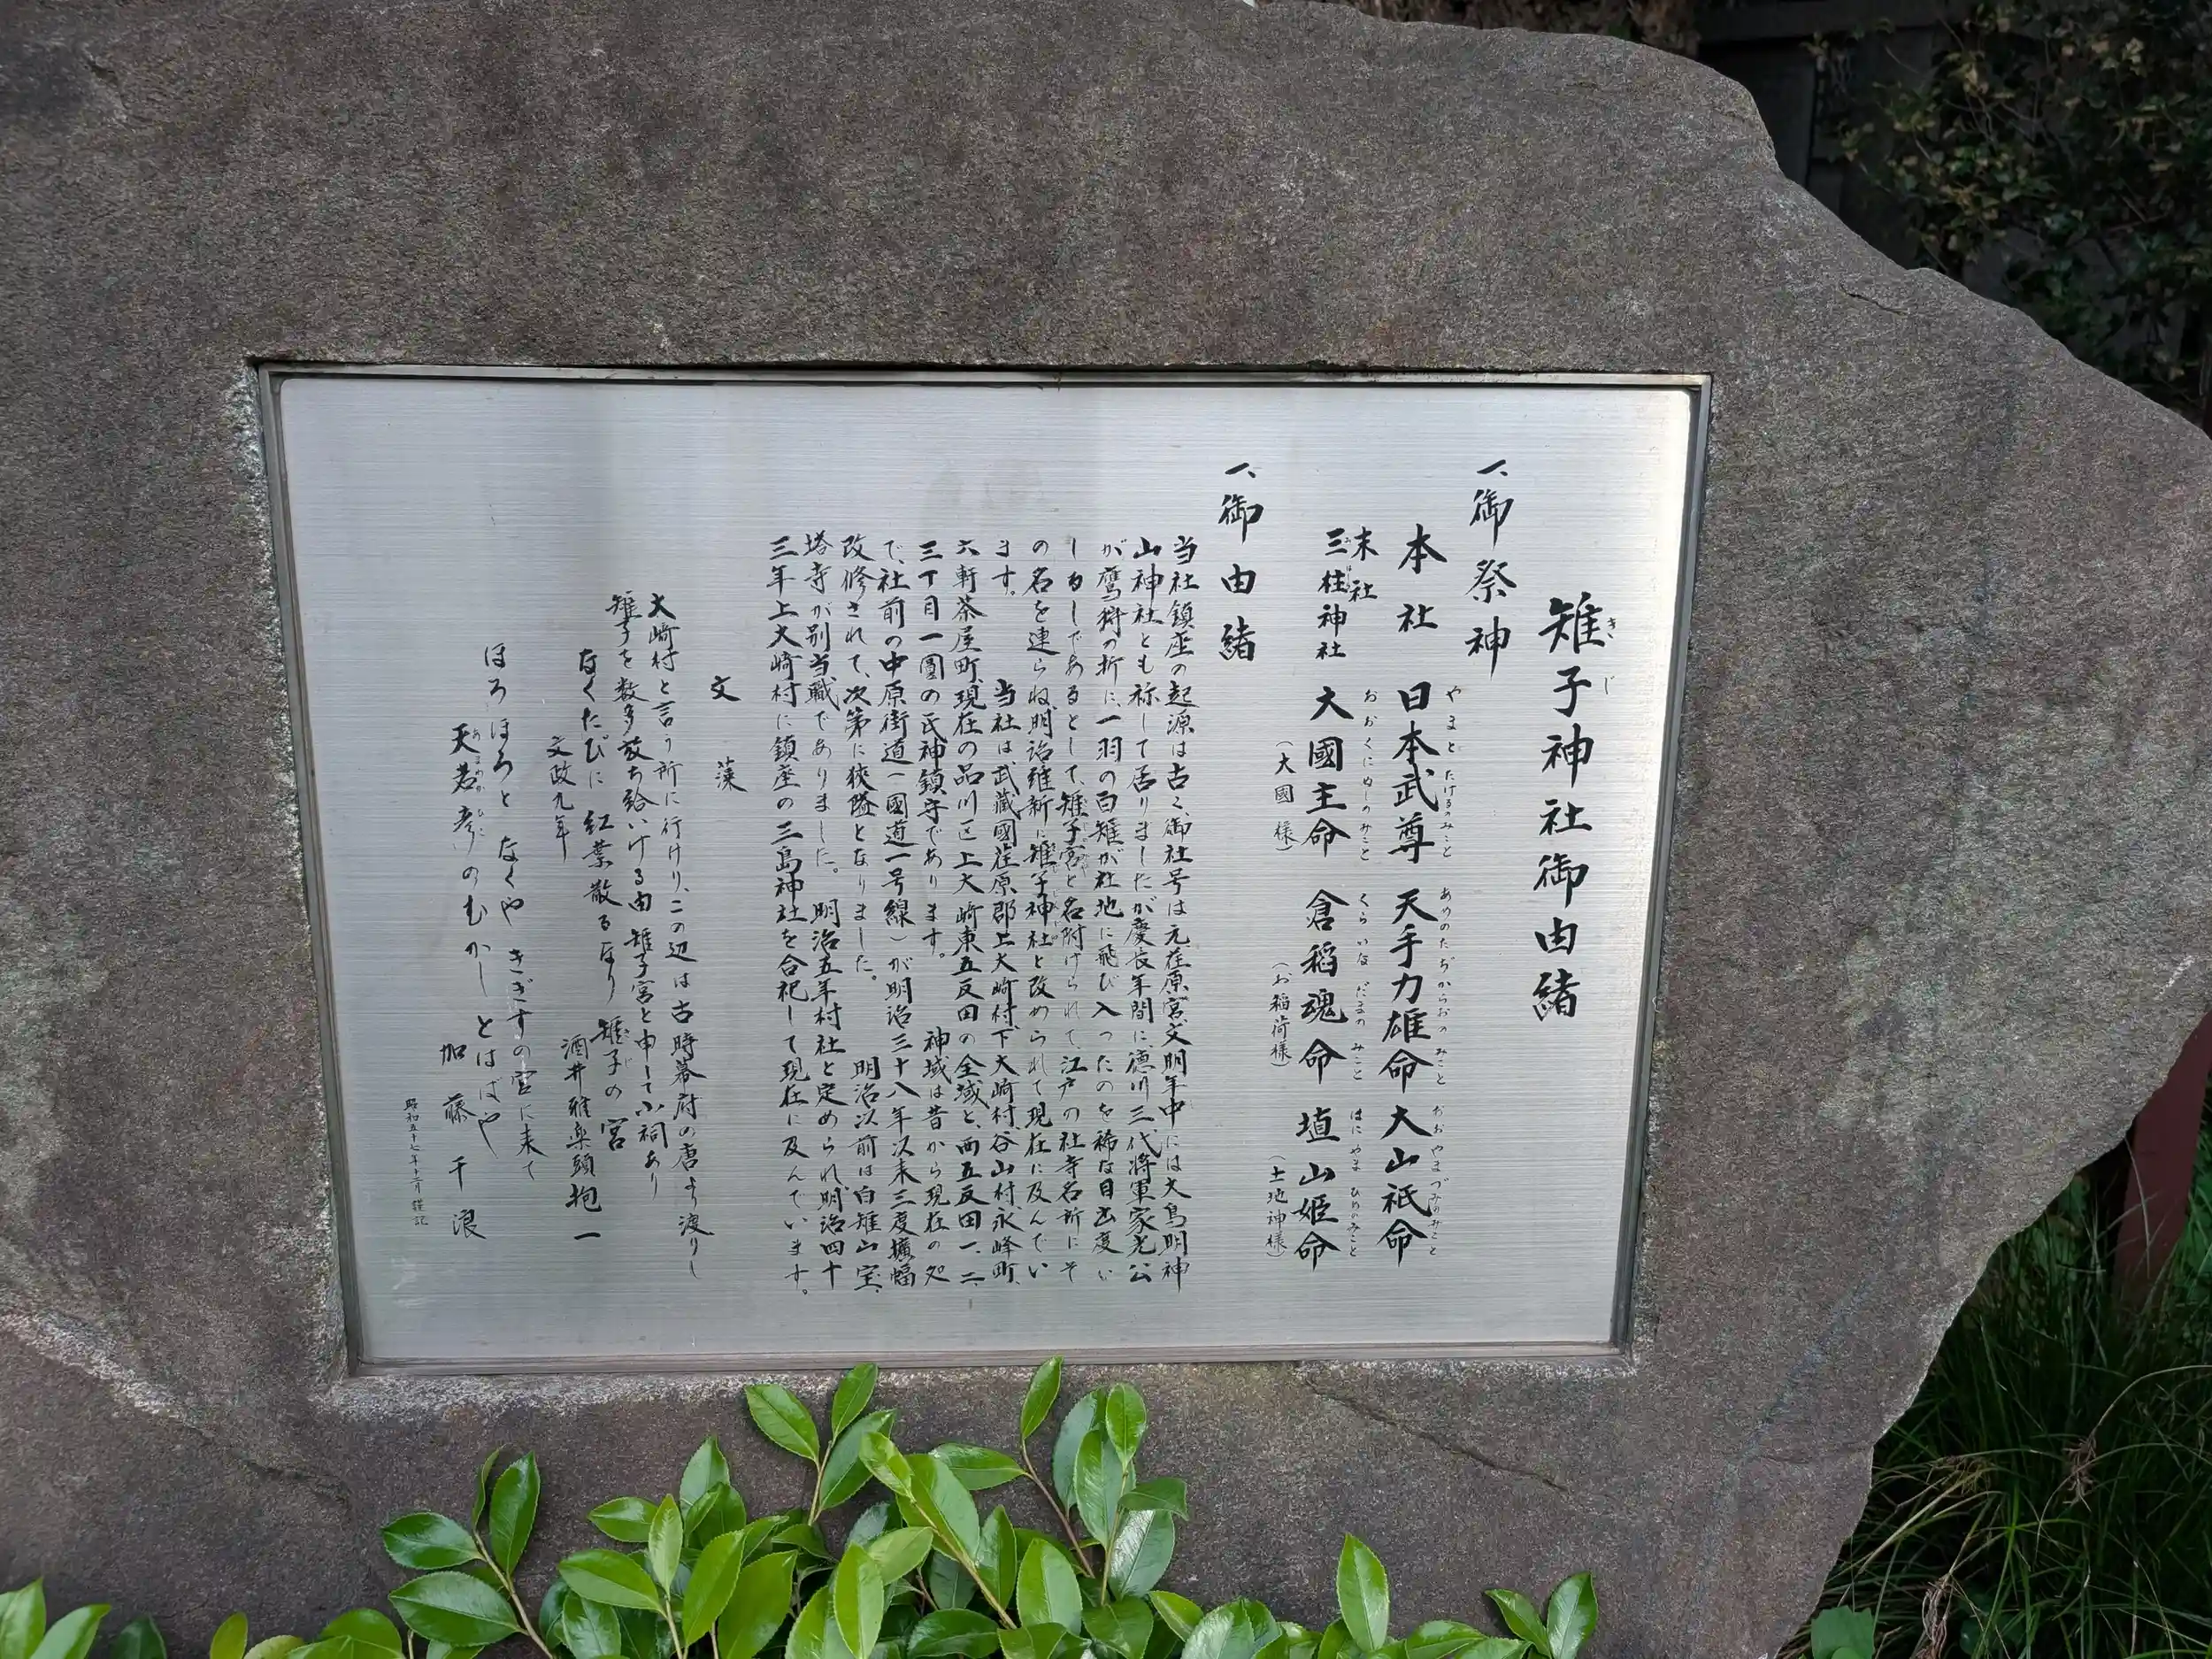 雉子神社御由緒
きじ
一、御祭神
本社 日本武尊 天手力雄命 大山祇命
やまとたけるのみこと あめのたぢからおのみこと おおやまづみのみこと
末社
三柱神社 大國主命 倉稲魂命 埴山姫命
みはしら おおくにぬしのみこと くらいなだまのみこと はにやまひめのみこと
(大國様) (お稲荷様) (土地神様)
一、御由緒
当社鎮座の起源は古く、御社号は元荏原宮、文明年中には大鳥明神
山神社とも称して居りましたが慶長年間に、徳川三代将軍家光公
が鷹狩の折に、一羽の白雉が社地に飛び入ったのを稀な目出度い
しるしであるとして、雉子宮と名附けられて、江戸の社寺名所にそ
の名を連らね、明治維新に雉子神社と改められて現在に及んでい
ます。 当社は武蔵國荏原郡上大崎村、下大崎村、谷山村、永峰町、
六軒茶屋町、現在の品川区上大崎東五反田の全域と、西五反田一、二、
三丁目一圓の氏神鎮守であります。 神域は昔から現在の処
で、社前の中原街道(國道一号線)が明治三十八年以来三度擴幅
改修されて、次第に狹隘となりました。 明治以前は白雉山宝
塔寺が別当職でありました。 明治五年村社と定められ、明治四十
三年上大崎村に鎮座の三島神社を合祀して現在に及んでいます。
文藻
大崎村と言う所に行けり、この辺は古時幕府の唐より渡りし
雉子を数多放ち給いける由 雉子宮と申して小祠あり
なくたびに 紅葉散るなり 雉子の宮
文政九年 酒井雅楽頭抱一
ほろほろと なくや きぎすの宮に来て
天若彦のむかし とはばや
あまわかひこ
加藤千浪
昭和五十七年十二月 謹記